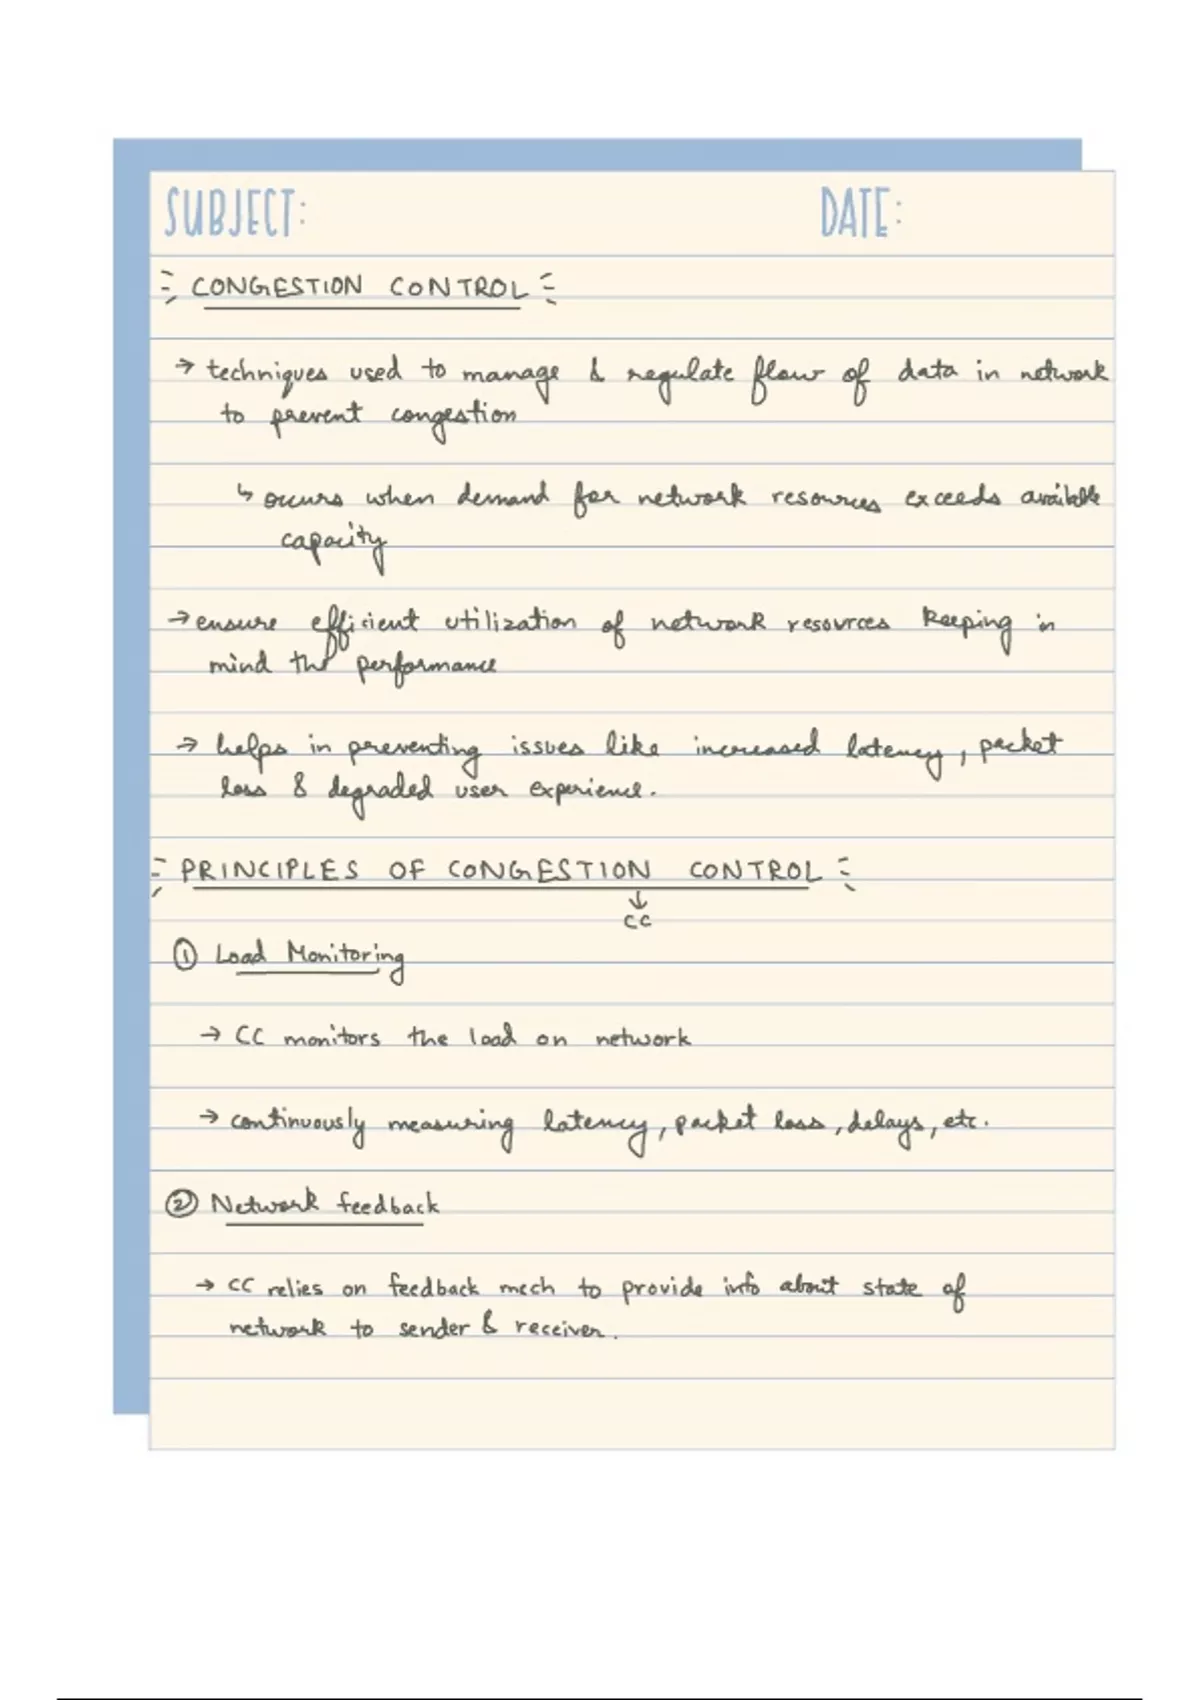 SUBJECT: DATE:
CONGESTION CONTROL
→ techniques used to manage & regulate flow of data in network
to prevent congestion
↳ occurs when demand for network resources exceeds available
capacity
→ ensure efficient utilization of network resources keeping in
mind the performance
→ helps in preventing issues like increased latency, packet
loss & degraded user experience.
PRINCIPLES OF CONGESTION CONTROL
↓
CC
① Load Monitoring
→ CC monitors the load on network
→ continuously measuring latency, packet loss, delays, etc.
② Network feedback
→ CC relies on feedback mech to provide info about state of
network to sender & receiver.